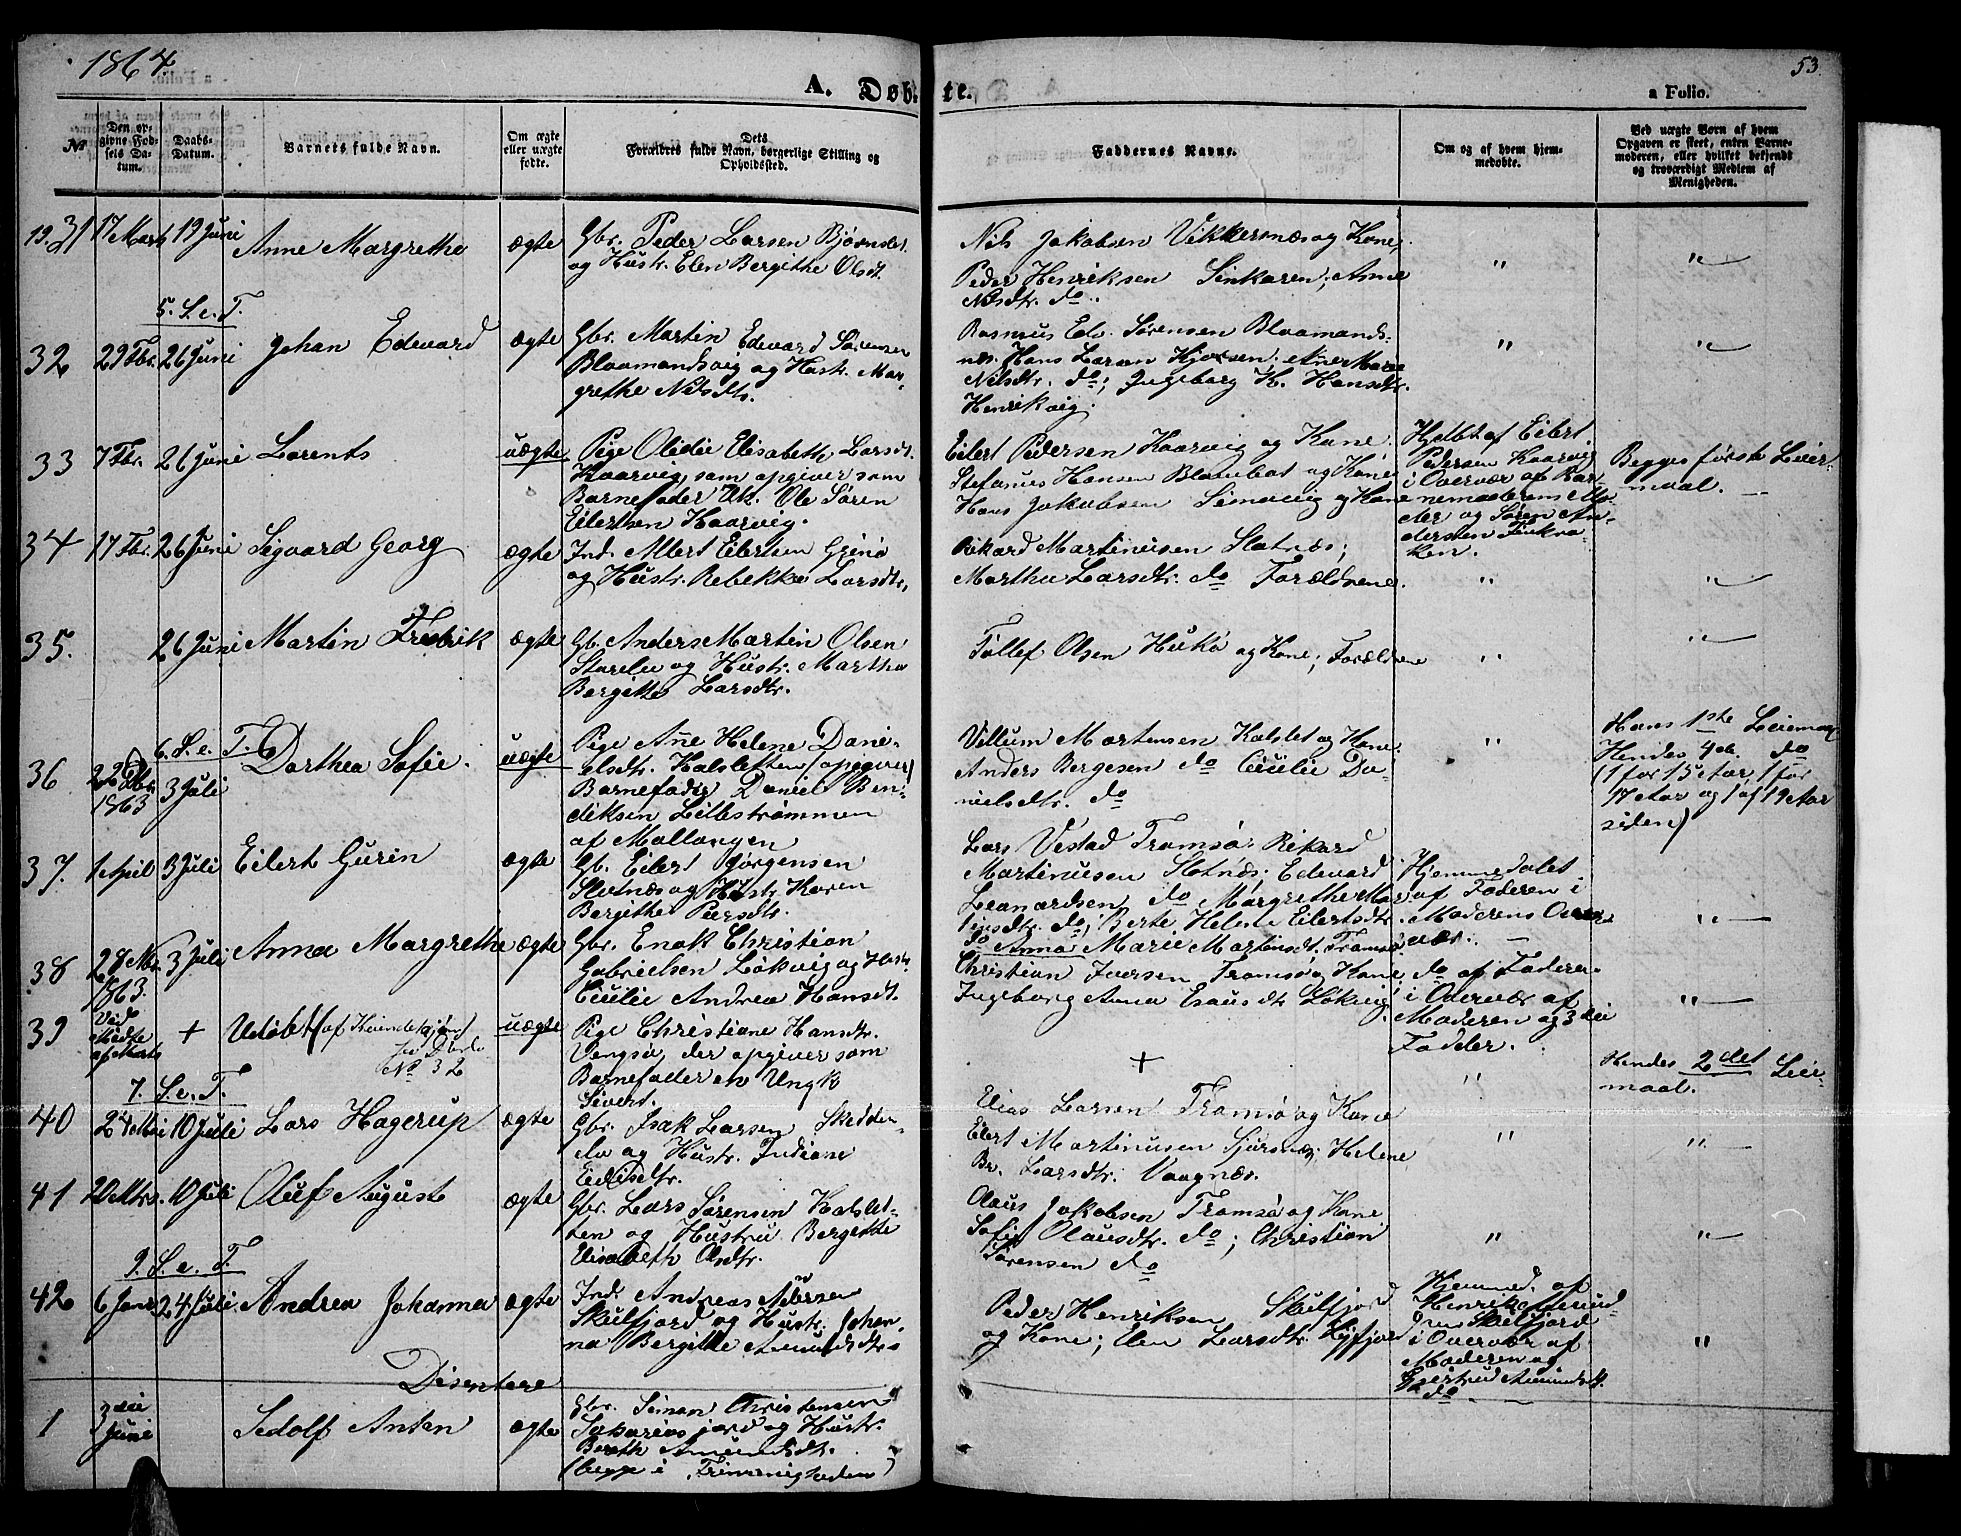 1864.
53.
A. Døb-
te.
a Folio.
No
Den op-
givne Fød-
sels Da-
tum.
Daabs-
Datum.
Barnets fulde Navn.
Om ægte
eller uægte
fødte.
Dets
Forældres fulde Navn, borgerlige Stilling og
Opholdssted.
Faddernes Navne.
Om og af hvem hjem-
medøbte.
Ved uægte Børn af hvem
Opgaven er skeet, enten Barne-
moderen, eller hvilket bekjendt
og troværdigt Medlem af
Menigheden.
31 17 Marts 19 Juni Anne Margrethe ægte
Gbr. Peder Larsen
og Hustr. Elen Bergithe Olsdt.
Nils Jakobsen Vikkersnæs og Kone,
Peder Henriksen Sinkaren; Anne
Nilsdtr. do.
" "
5. S. e. T.
32 29 Fbr. 26 Juni Johan Edevard ægte
Gbr. Martin Edevard Sørensen
Blaamandsvig og Hustr. Mar-
grethe Nilsdtr.
Rasmus Edv. Sørensen Blaamands-
næs. Hans Larsen; Ane Marie
Nilsdtr. do; Ingeborg H. Hansdtr.
Henrikvig.
" "
33 7 Fbr. 26 Juni Lorents uægte
Pige Oledie Elisabeth Larsdt.
Kaarvig, som opgiver som
Barnefader Uk. Ole Søren
Eilertsen Kaarvig.
Eilert Pedersen Kaarvig og Kone.
Stefanus Hansen og Kone
Hans Jakobsen Simavig og Kone
Hjdøbt af Eilert
Pedersen Kaarvig
i Overvær af Bar-
nemoderens Mo-
der og Søren An-
dersen Finkro-
ken.
Begges første Leier-
maal.
34 17 Fbr. 26 Juni Sigvard Georg ægte
Ind. Albert Eilertsen Grinø
og Hustr. Rebekka Larsdtr.
Rikard Martinusen Slotnæs;
Martha Larsdtr. do Forældrene.
" "
35. 26 Juni Martin Fredrik ægte
Gb. Anders Martin Olsen
og Hustr. Martha
Bergitte Larsdtr.
Tollef Olsen og Kone; Forældrene
" "
6. S. e. T.
36 22 Dbr. 1863 3 Juli Dorthea Sofie. uægte
Pige Ane Helene Dani-
elsdtr. Kalsletten (opgiver)
Barnefader Daniel Ben-
diksen Lillestrømmen
af Mallangen
Villum Mortensen Kalslet og Kone.
Anders Bergesen do Cecilie Da-
nielsdtr. do
"
Hans 1ste Leiemaal
Hendes 4de do
(1 for 15 Aar, 1 for
17 Aar og 1 af 19 Aar
siden)
37. 1 April 3 Juli Eilert Gurin ægte
Gb. Eilert Jørgensen
Slotnæs og Hustr. Karen
Bergithe Peersdtr.
Lars Vestad Tromsø. Rikard
Martinusen Slotnæs; Edevard
Leonardsen do Margrethe Mar-
tinsdtr. do; Berte Helene Eilertsdtr.
do Anna Marie Martinsdt. Tromsø
Hjemmedøbt
af Faderen i
Moderens Over-
vær.
"
38 28 Nbr. 1863. 3 Juli Anna Margrethe ægte
Gbr. Enok Christian
Gabrielsen Løkvig og Hustr.
Cecilie Andrea Hansdt.
Christian Iversen Tromsø og Kone,
Ingeborg Anna Esausdtr Løkvig.
do af Faderen
i Overvær af
Moderen og 3die
Fadder.
"
39 Ved Midte af Marts + Udøbt (af Kvindekjøn) se Døde No 32 uægte
Pige Christiane Hansdtr.
Vengsø, der opgiver som
Barnefader en Ungk
Sivert.
+
"
Hendes 2det Leier-
maal.
7. S. e. T.
40 24 Mai 10 Juli Lars Hagerup ægte
Gbr. Isak Larsen Skedden-
elv og Hustr. Indiane
Eidisdtr.
Elias Larsen Tromsø og Kone
Eilert Martinusen Sjursnæs; Helene
Br. Larsdtr. Vaagnæs.
" "
41 20 Mrs. 10 Juli Oluf August ægte
Gbr. Lars Sørensen Kalslet-
ten og Hustru Bergitte
Elisabeth Olsdtr.
Olaus Jakobsen Tromsø og Kone
Sofie Olausdtr. do; Christian
Sørensen do
" "
9. S. e. T.
42 6 Janr 24 Juli Andrea Johanna ægte
Ind. Andreas Pedersen
Skulfjord og Hustr. Johan-
na Bergitte Amundsdtr.
Peder Henriksen Skulfjord
og Kone; Elen Larsdtr. Lyfjord
Hjemmed. af
Henrik
Skulfjord
i Overvær af
Moderen og
Gjertrud Amundsdt.
do
"
Disentere
1 3die Juni Sedolf Anton ægte
Gbr. Simon Christensen
Sakariasjord og Hustr.
Bereth Amundsdtr.
(begge i Frimenigheden)